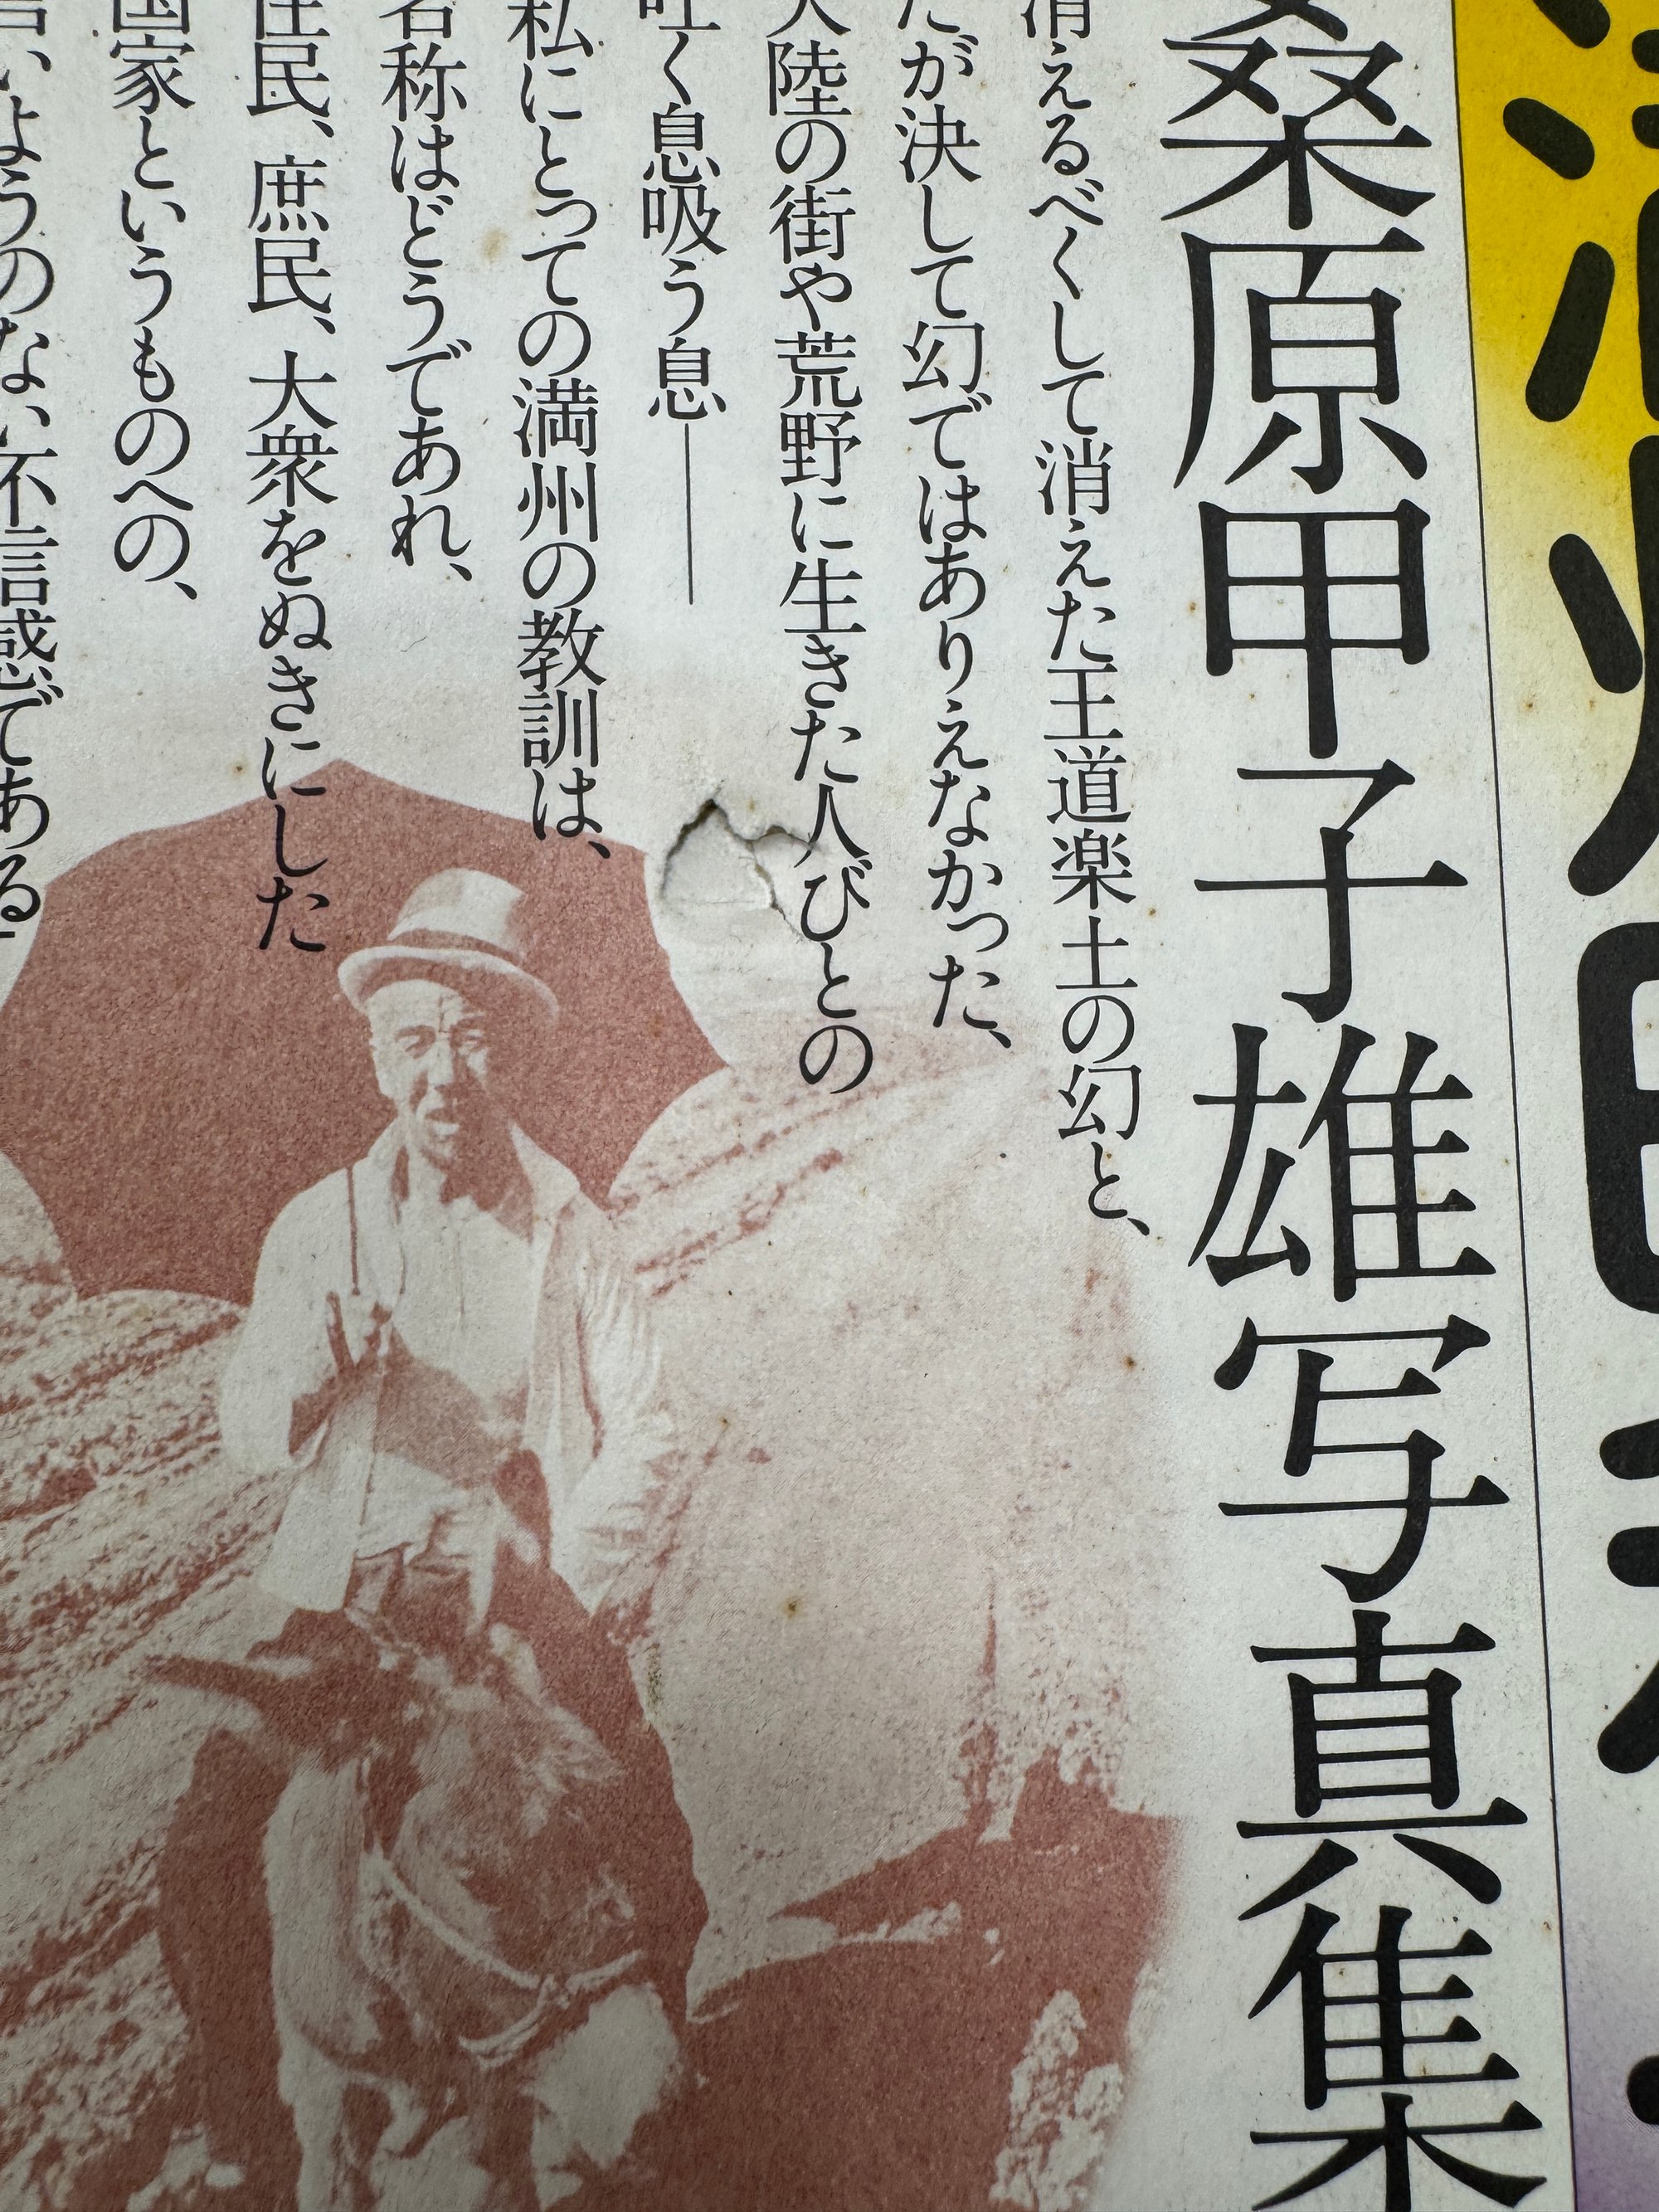 桑原甲子雄写真集
消えるべくして消えた王道楽土の幻と、
だが決して幻ではありえなかった、
大陸の街や荒野に生きた人びとの
吐く息吸う息――
私にとっての満州の教訓は、
名称はどうであれ、
住民、庶民、大衆をぬきにした
国家というものへの、
言いようのない不信感である